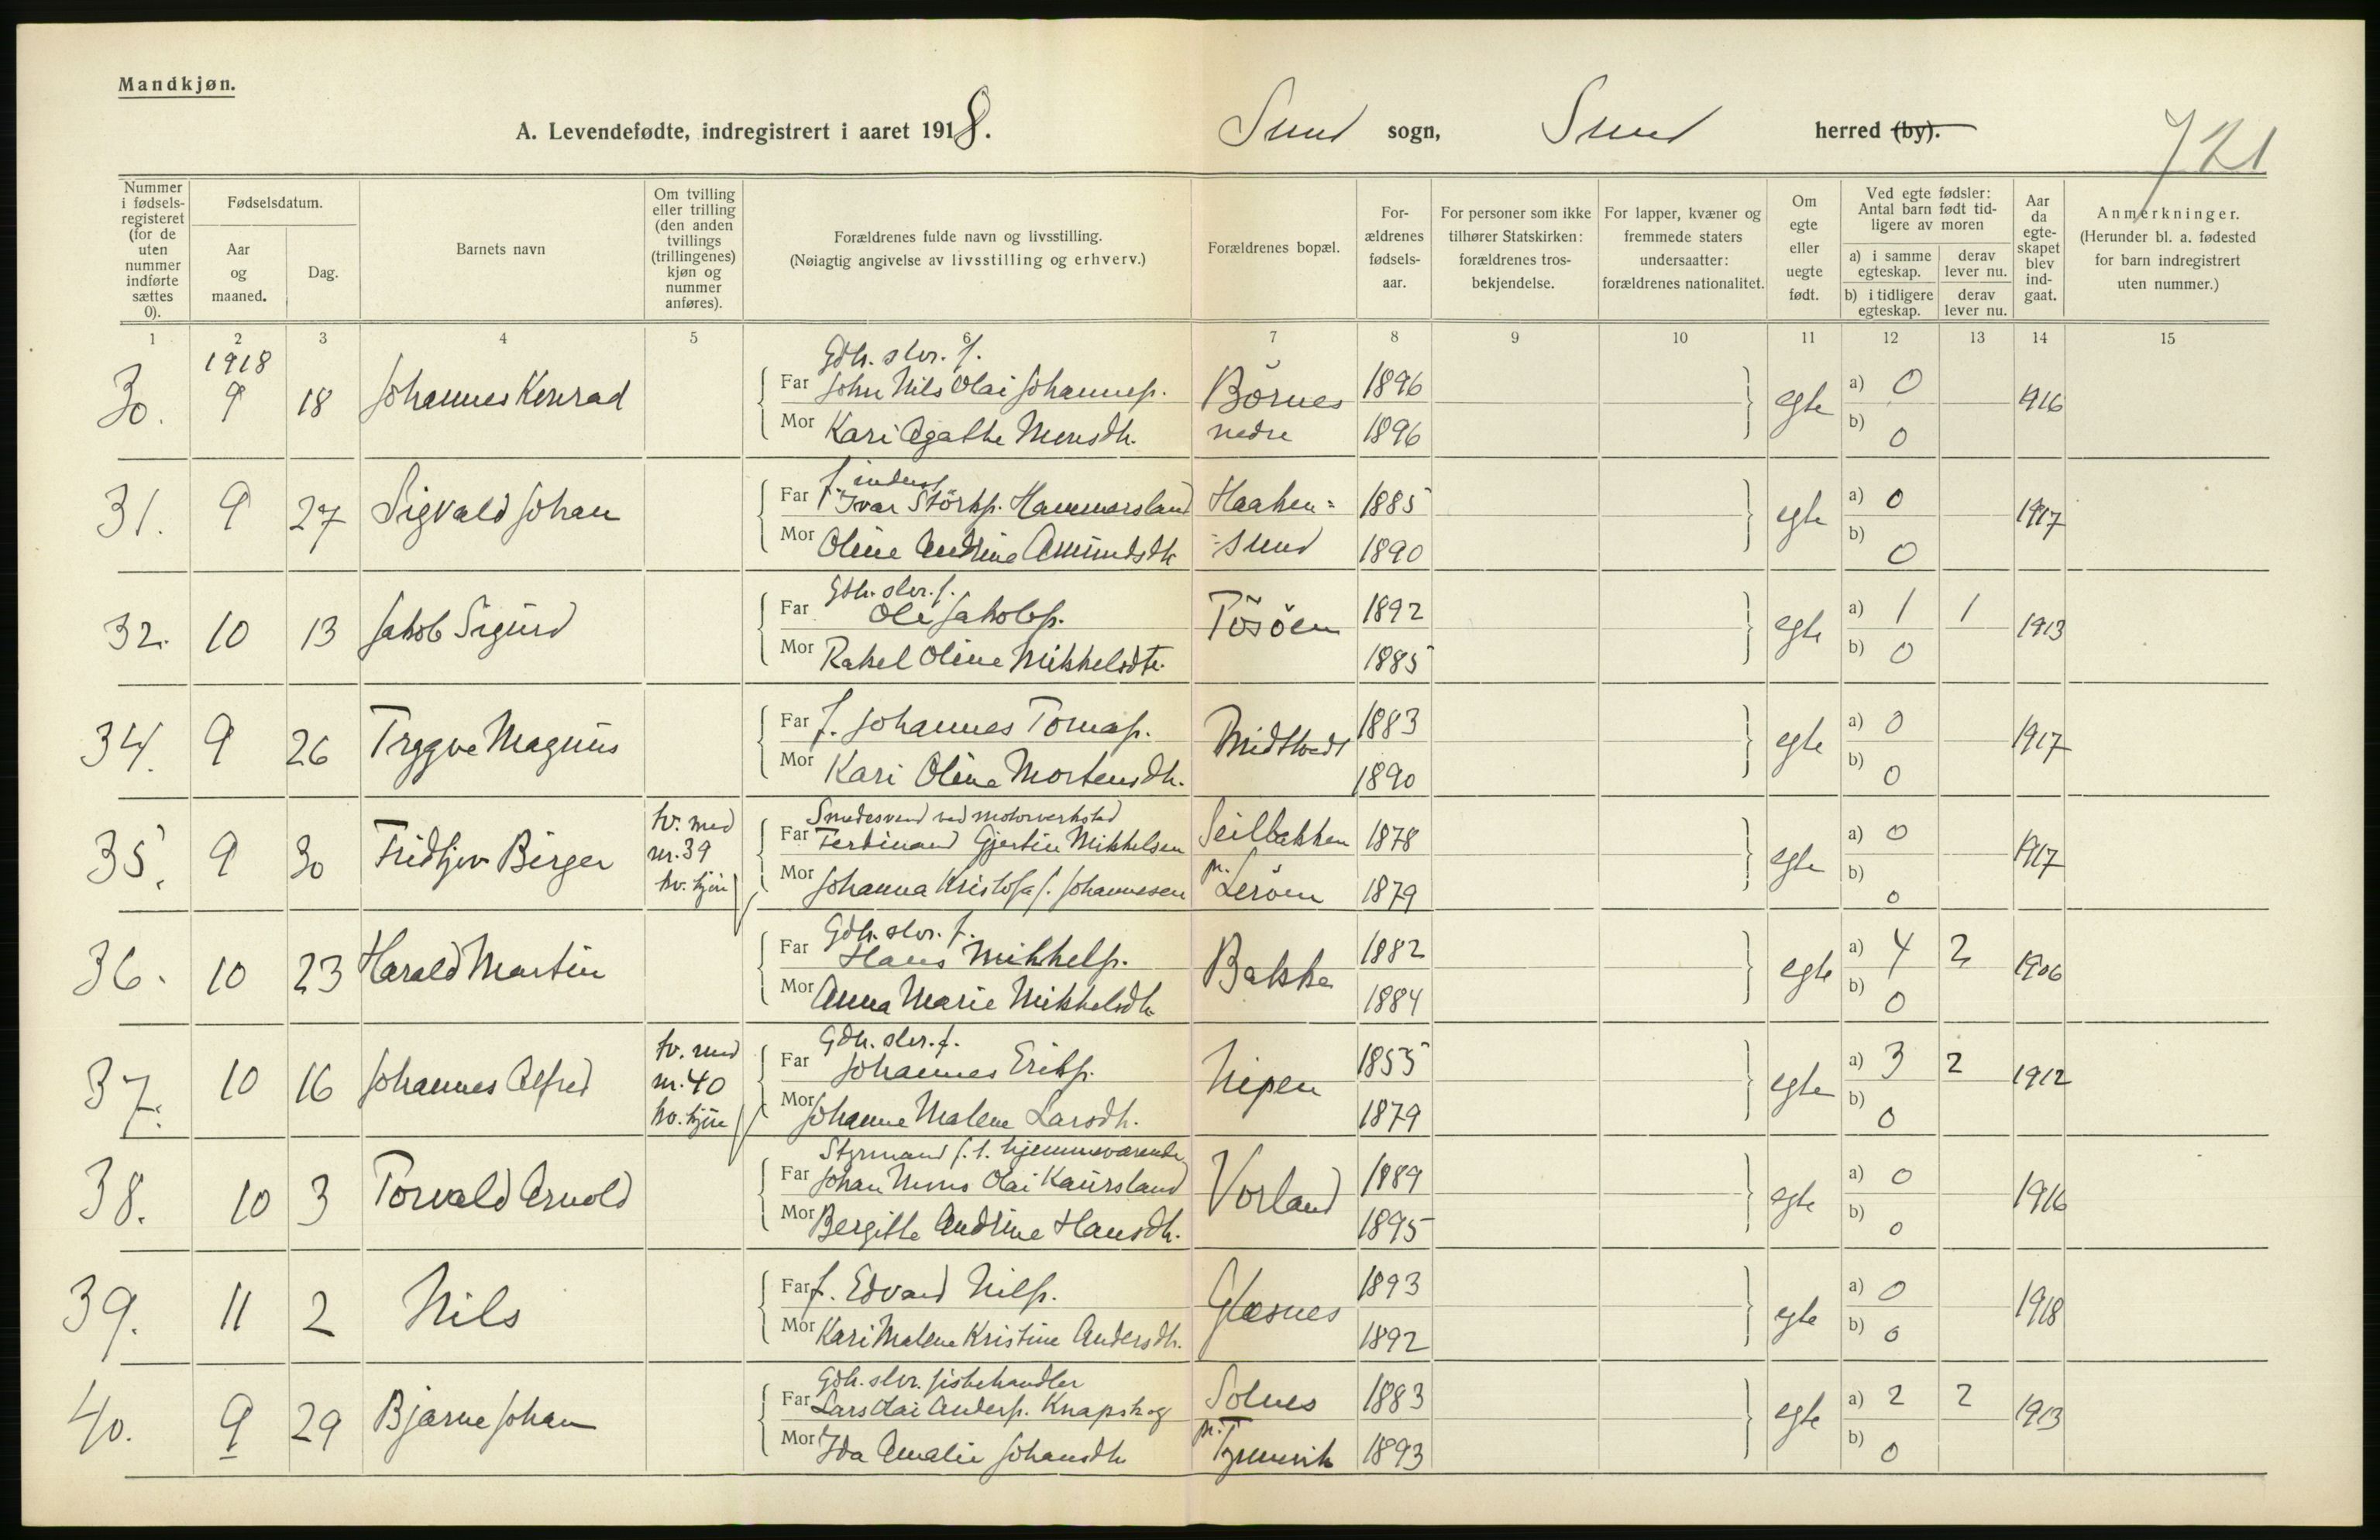 Mandkjøn.
A. Levendefødte, indregistrert i aaret 1918.
Sund sogn, Sund herred (by).
721
Nummer i fødsels-registeret (for de uten nummer indførte sættes 0).
Fødselsdatum.
Aar og maaned.
Dag.
Barnets navn
Om tvilling eller trilling (den anden tvillings (trillingenes) kjøn og nummer anføres).
Forældrenes fulde navn og livsstilling.
(Nøiagtig angivelse av livsstilling og erhverv.)
Forældrenes bopæl.
For-ældrenes fødsels-aar.
For personer som ikke tilhører Statskirken: forældrenes tros-bekjendelse.
For lapper, kvæner og fremmede staters undersaatter: forældrenes nationalitet.
Om egte eller uegte født.
Ved egte fødsler: Antal barn født tid-ligere av moren
a) i samme egteskap.
derav lever nu.
b) i tidligere egteskap.
derav lever nu.
Aar da egte-skapet blev ind-gaat.
Anmerkninger.
(Herunder bl. a. fødested for barn indregistrert uten nummer.)
1 2 3 4 5 6 7 8 9 10 11 12 13 14 15
1918
Gdh. slvr. f.
30. 9 18 Johannes Konrad Far John Nils Olai Johanness. Börnes 1896 egte a) 0 1916
Mor Kari Agathe Monsdtr. nedre 1896 b) 0
31. 9 27 Sigvald Johan Far Ivar Störks. Hammersland Haaken= 1885 egte a) 0 1917
Mor Oline Andrine Amundsdtr =sund 1890 b) 0
Gdh. slvr. f.
32. 10 13 Jakob Sigurd Far Ole Jakobs. Tösöen 1892 egte a) 1 1 1913
Mor Rakel Oline Mikkelsdtr. 1885 b) 0
34. 9 26 Trygve Magnus Far f. Johannes Tomas. Midttvedt 1883 egte a) 0 1917
Mor Kari Oline Mortensdtr. 1890 b) 0
Smedesvend ved motorverksted
35. 9 30 Fridtjov Birger tv. med nr. 39 kv. kjön Far Ferdinand Gjertin Mikkelsen Seilbakken 1878 egte a) 0 1917
Mor Johanna Kristofa f. Johannesen pr. Leröen 1879 b) 0
Gdh. slvr. f.
36. 10 23 Harald Martin Far Hans Mikkels. Bakke 1882 egte a) 4 2 1906
Mor Anna Marie Mikkelsdtr 1884 b) 0
Gdh. slvr. f.
37. 10 16 Johannes Alfred tv. med nr. 40 kv. kjön Far Johannes Eriks. Nipen 1855 egte a) 3 2 1912
Mor Johanne Malene Larsdtr. 1879 b) 0
Styrmand f. t. hjemmeværende
38. 10 3 Torvald Arnold Far Johan Mons Olai Kaursland Vorland 1889 egte a) 0 1916
Mor Bergitte Andrine Hansdtr. 1895 b) 0
39. 11 2 Nils Far f. Edvard Nils. Glesnes 1893 egte a) 0 1918
Mor Kari Malene Kristine Andersdtr. 1892 b) 0
Gdh. slvr. fiskehandler
40. 9 29 Bjarne Johan Far Lars Olai Anders. Knapskog Solnes 1883 egte a) 2 2 1913
Mor Ida Amalie Johansdtr pr. 1893 b) 0